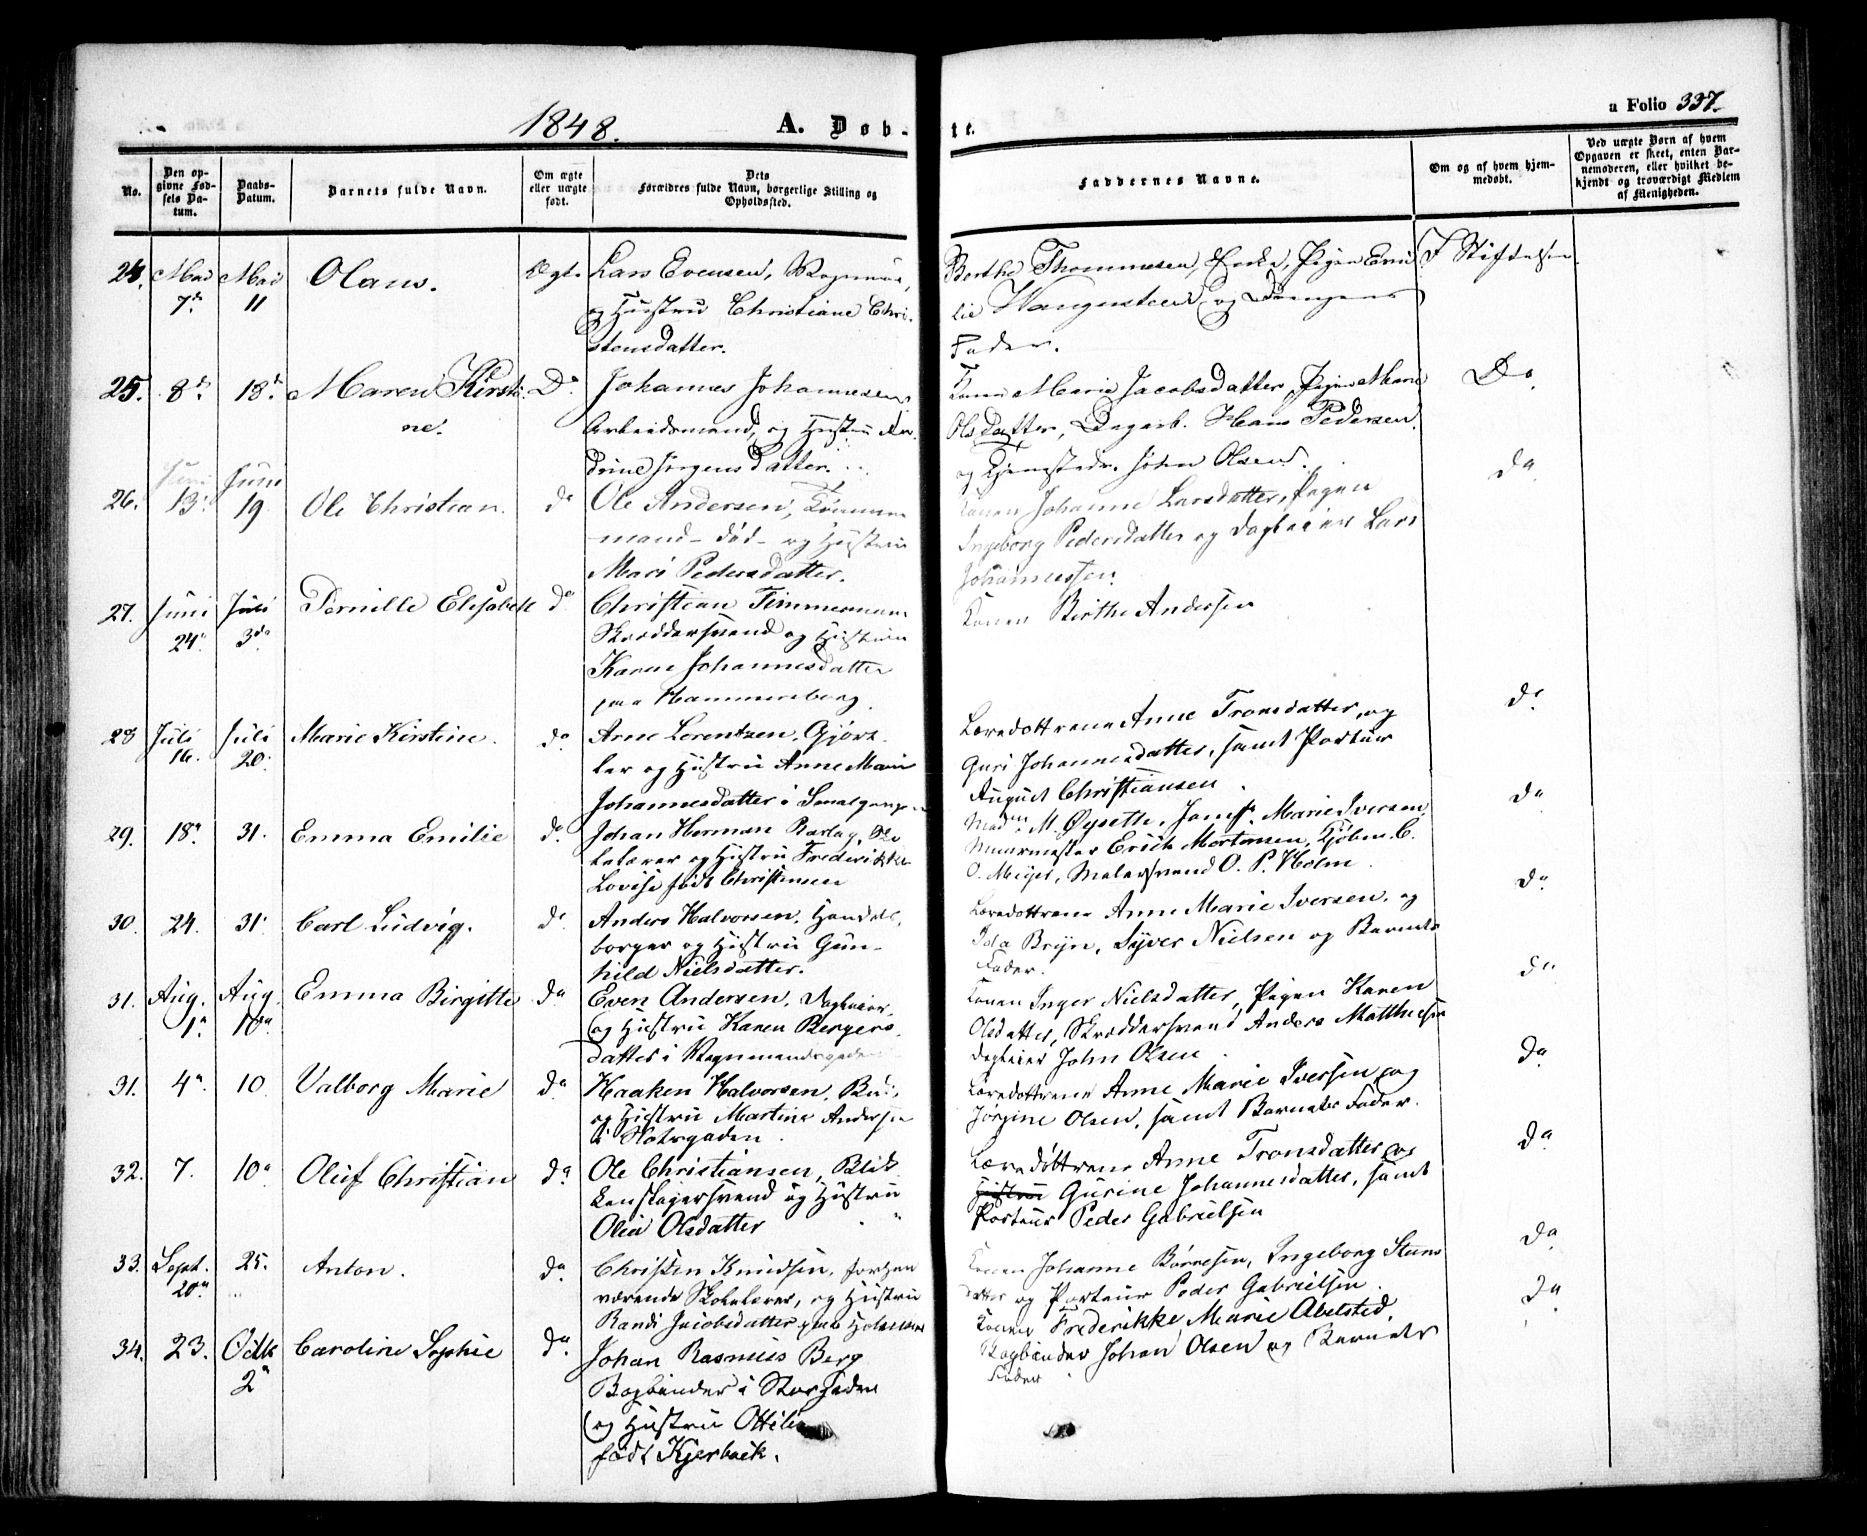 1848. A. Døb-
te.
a Folio 337.
No.
Den op-
givne Fød-
sels Da-
tum.
Daabs-
Datum.
Barnets fulde Navn.
Om ægte
eller uægte
født.
Dets
Forældres fulde Navn, borgerlige Stilling og
Opholdssted.
Faddernes Navne.
Om og af hvem hjem-
medøbt.
Ved uægte Børn af hvem
Opgaven er skeet, enten Bar-
nemoderen, eller hvilket be-
kjendt og troværdigt Medlem
af Menigheden.
24. Mai Mai Olaus. Ægte Lars Evensen,
7de 11 og Hustru Christiane Chri-
stensdatter.
Berthe Thommesen, Pigen Emi
lie Wangensteen og
Fader.
I Stiftelsen
25. 8de 18de Maren Kirsti- Do Johannes Johannesen
ne. Arbeidsmand, og Hustru An-
drine Jørgensdatter.
Kone Marie Jacobsdatter, Pigen Marie
Olsdatter, Dagarb. Hans Pedersen,
og John Olsen.
Do.
Juni Juni
26. 13. 19 Ole Christian. do Ole Andersen,
mand død og Hustru
Mari Pedersdatter.
Konen Johanne Larsdatter, Pigen
Ingeborg Pedersdatter og Dagleier Lars
Johannessen.
do
27. Juni Juli Pernille Elisabeth do Christian Timmermann
24. 3de Skræddersvend og Hustru
Karen Johannesdatter
paa Hammersborg.
Konen Birthe Andersen
do
28 Juli Juli Marie Kirstine. do Arne Lorentzen, Gjørt-
16. 20. ler og Hustru Anne Marie
Johannesdatter i Smalgangen
Læredøttrene Anne Tronsdatter, og
Guri Johannesdatter, samt Portør
August Christiansen.
do
29. 18de 31. Emma Emilie do. Johan Herman
og Hustru Frederikke
Lovise født Christensen
Madm M. Øysette, Jomf. Marie Iversen,
Muurmester Erich Mortensen, Kjøbm. C.
O. Meyer, Malersvend O. P. Holm.
do
30. 24. 31. Carl Ludvig. do. Anders Halvorsen, Handels-
borger og Hustru Gun-
hild Nielsdatter.
Læredøttrene Anne Marie Iversen, og
Ida Bryn, Syver Nielsen og Barnets
Fader.
do
31. Aug. Aug. Emma Birgitte do Even Andersen, Dagleier,
1. 10de og Hustru Karen Bergers-
datter i Vognmandsgaden
Konen Inger Nielsdatter, Pigen Karen
Olsdatter, Skræddersvend Anders Mathiesen
Dagleier John Olsen.
do
31. 4de 10 Valborg Marie do Haaken Halvorsen,
og Hustru Martine Andersen
i gaden.
Læredøttrene Anne Marie Iversen og
Jørgine Olsen, samt Barnets Fader.
do
32. 7. 10de Oluf Christian do. Ole Christiansen, Blik-
kenslagersvend og Hustru
Olea Olsdatter
Læredøttrene Anne Tronsdatter og
Hustru Gurine Johannesdatter, samt
Portør Peder Gabrielsen
do
33. Sept. 25. Anton. do. Christen Knudsen, forhen
20de værende Skolelærer, og Hustru
Randi Jacobsdatter paa
Konen Johanne Børresen, Ingeborg
datter og Portør Peder Gabrielsen.
do
34. 23. Octb Caroline Sophie do. Johan Rasmus Berg
2de Bogbinder i Storgaden
og Hustru Ottilie
født Kjerbæk.
Konen Frederikke Marie Abelsted,
Bogbinder Johan Olsen og Barnets
Fader